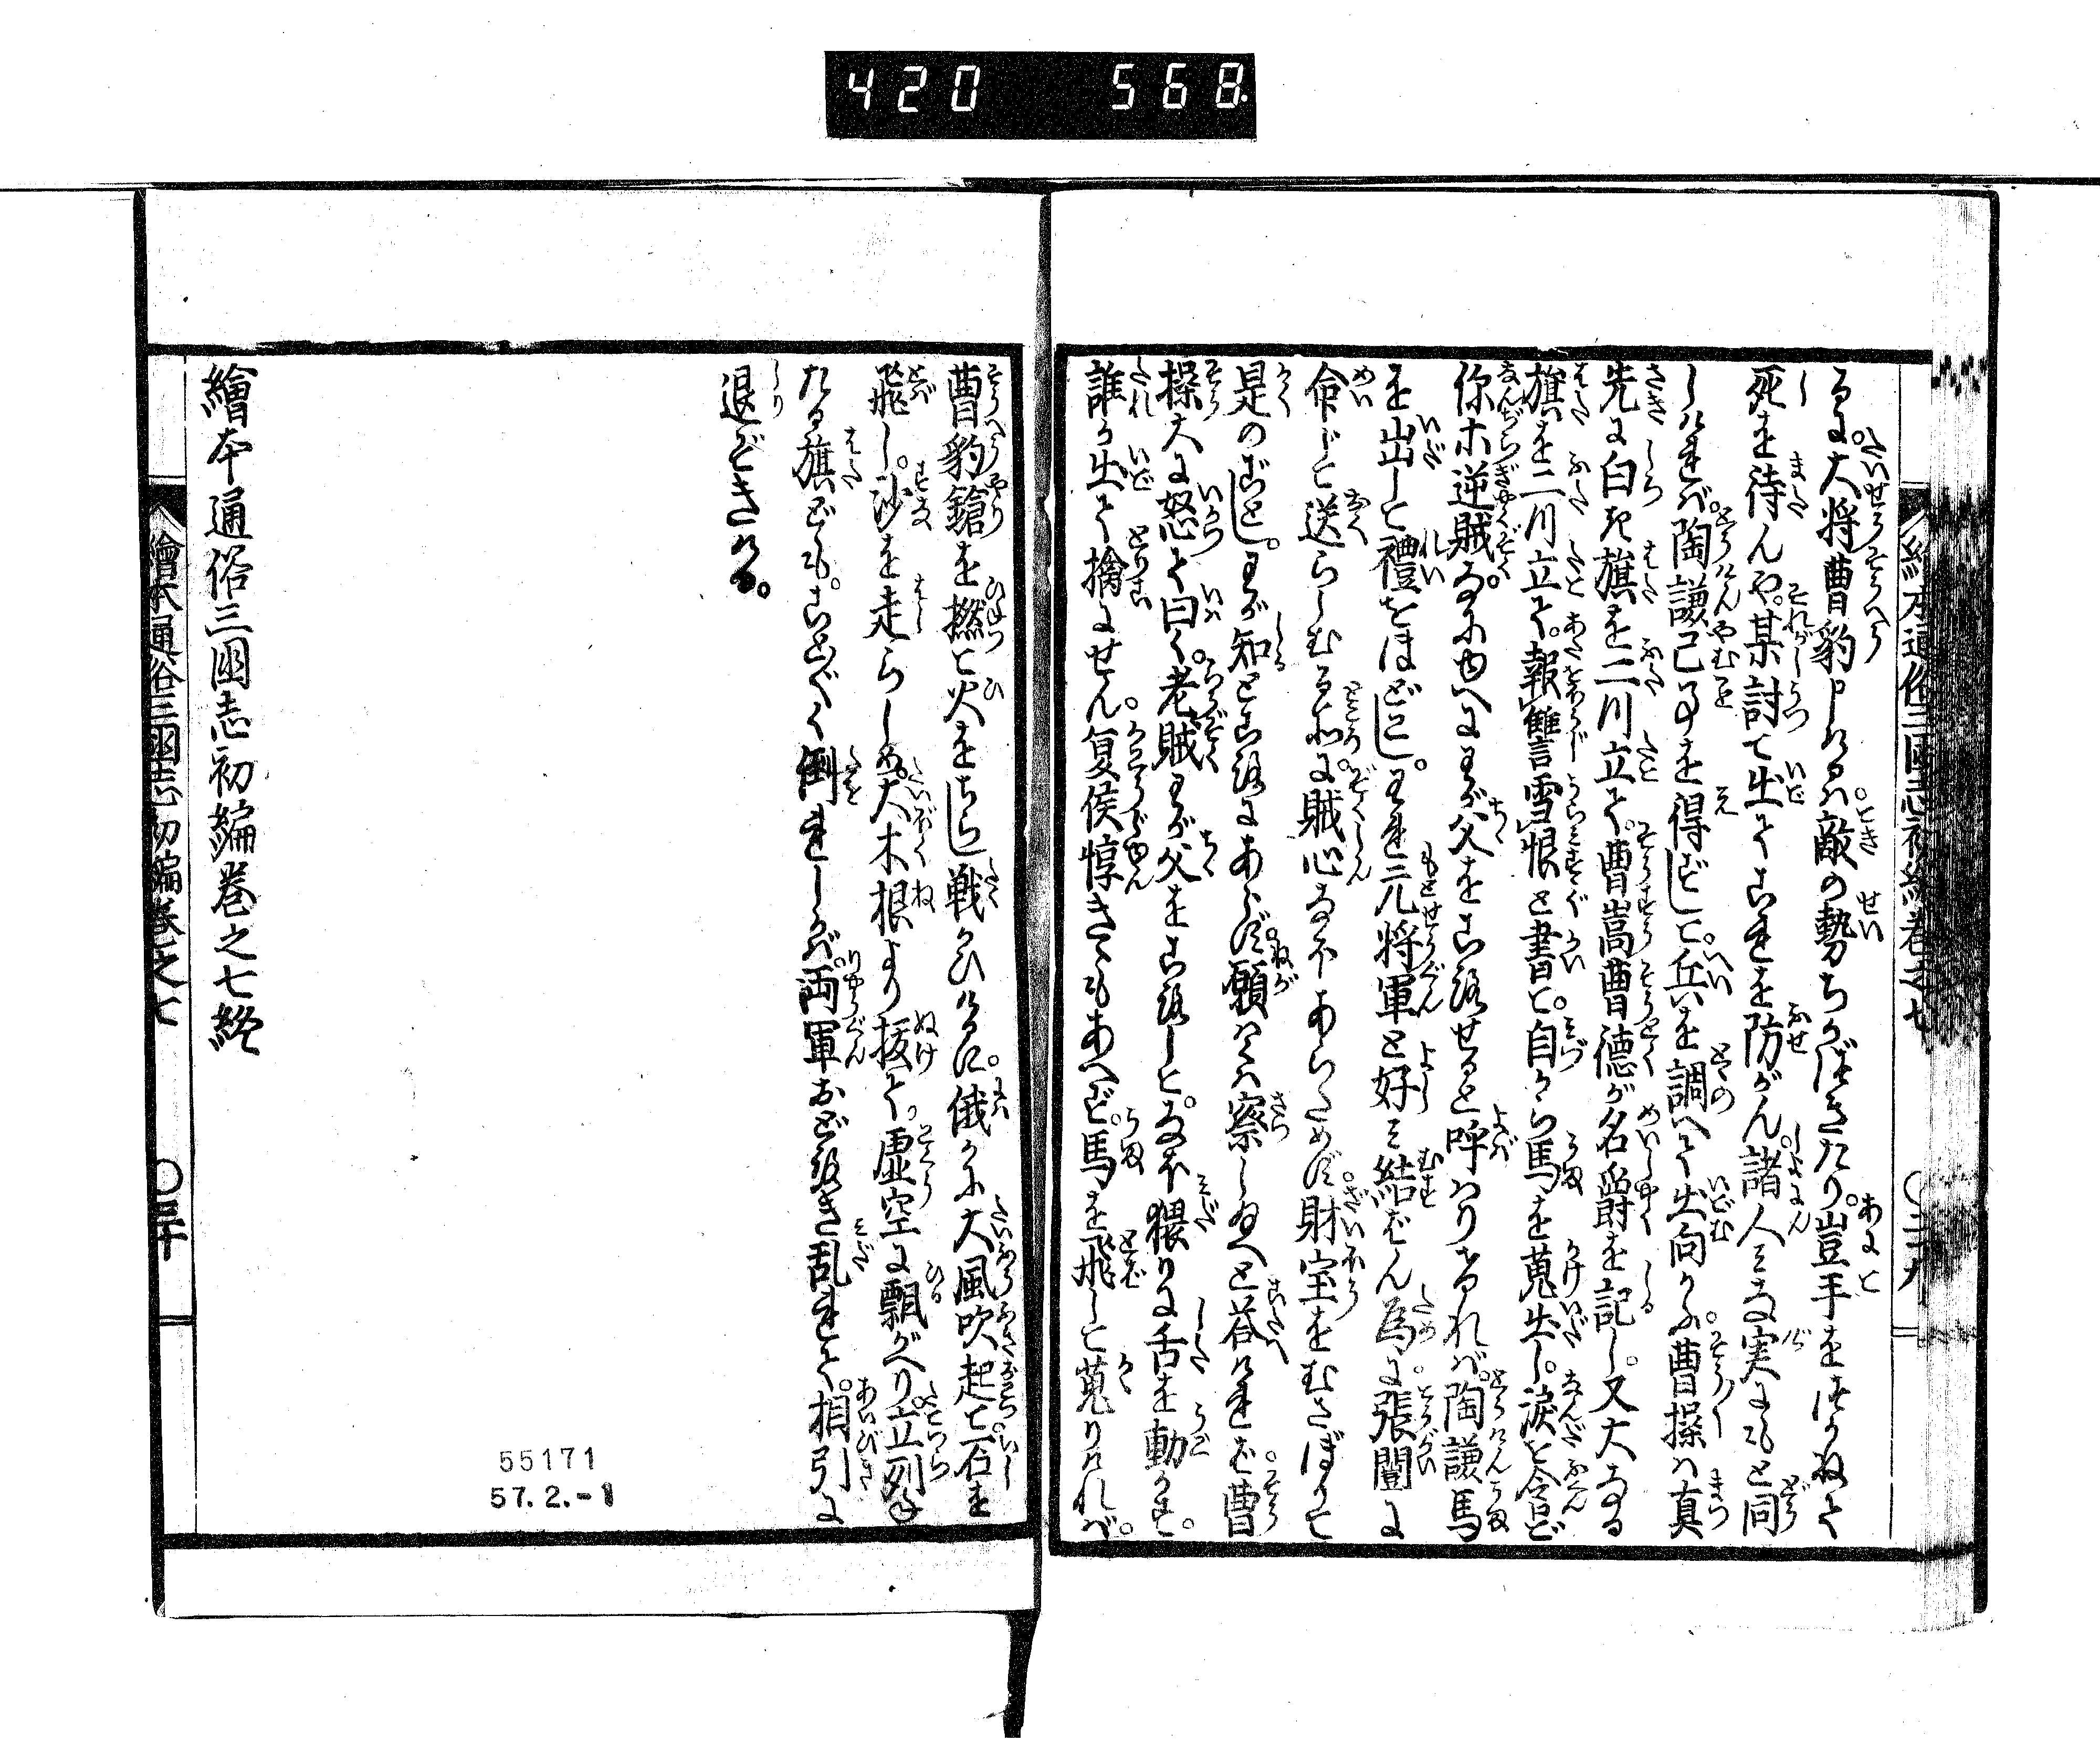 420 568
繪本通俗三國志初編卷之七 〇二十九
るに。大将曹豹申けるハ。敵の勢ちかづきたり。豈手をつかねて
死を待んや。某討て出てこれを防がん。諸人ミな実にもと同
しければ。陶謙已事を得ずして。兵を調へて出向かふ。曹操ハ真
先に白き旗を二川立て。曹嵩曹德が名爵を記し。又大なる
旗を二川立て。報讐雪恨と書て。自から馬を蒐出し。涙を含ど
你ホ逆賊。なにゆへにわが父をころせると呼ハりけれバ。陶謙馬
を出して禮をほどこし。われ元将軍と好ミ結ばん為に。張闓に
命じて送らしむる所に。賊心なほあらためず。財宝をむさぼりて
是のごとし。わが知ところにあらず。願くハ察し給へと答ければ。曹
操大に怒て曰く。老賊わが父をころして。なほ猥りに舌を動かす。
誰か出て擒にせん。夏侯惇きくもあへず。馬を飛して蒐りけれバ。
曹豹鎗を撚て火をちらし戦かひけるに。俄かに大風吹起て石を
飛し。沙を走らしめ。大木根より抜て。虚空に飄がへり。立列ね
たる旗ども。ことごとく倒れしかば。両軍おどろき乱れて。相引に
退ぞきける。
繪本通俗三國志初編卷之七終
55171
57.2.-1
繪本通俗三國志初編卷之七 〇三十